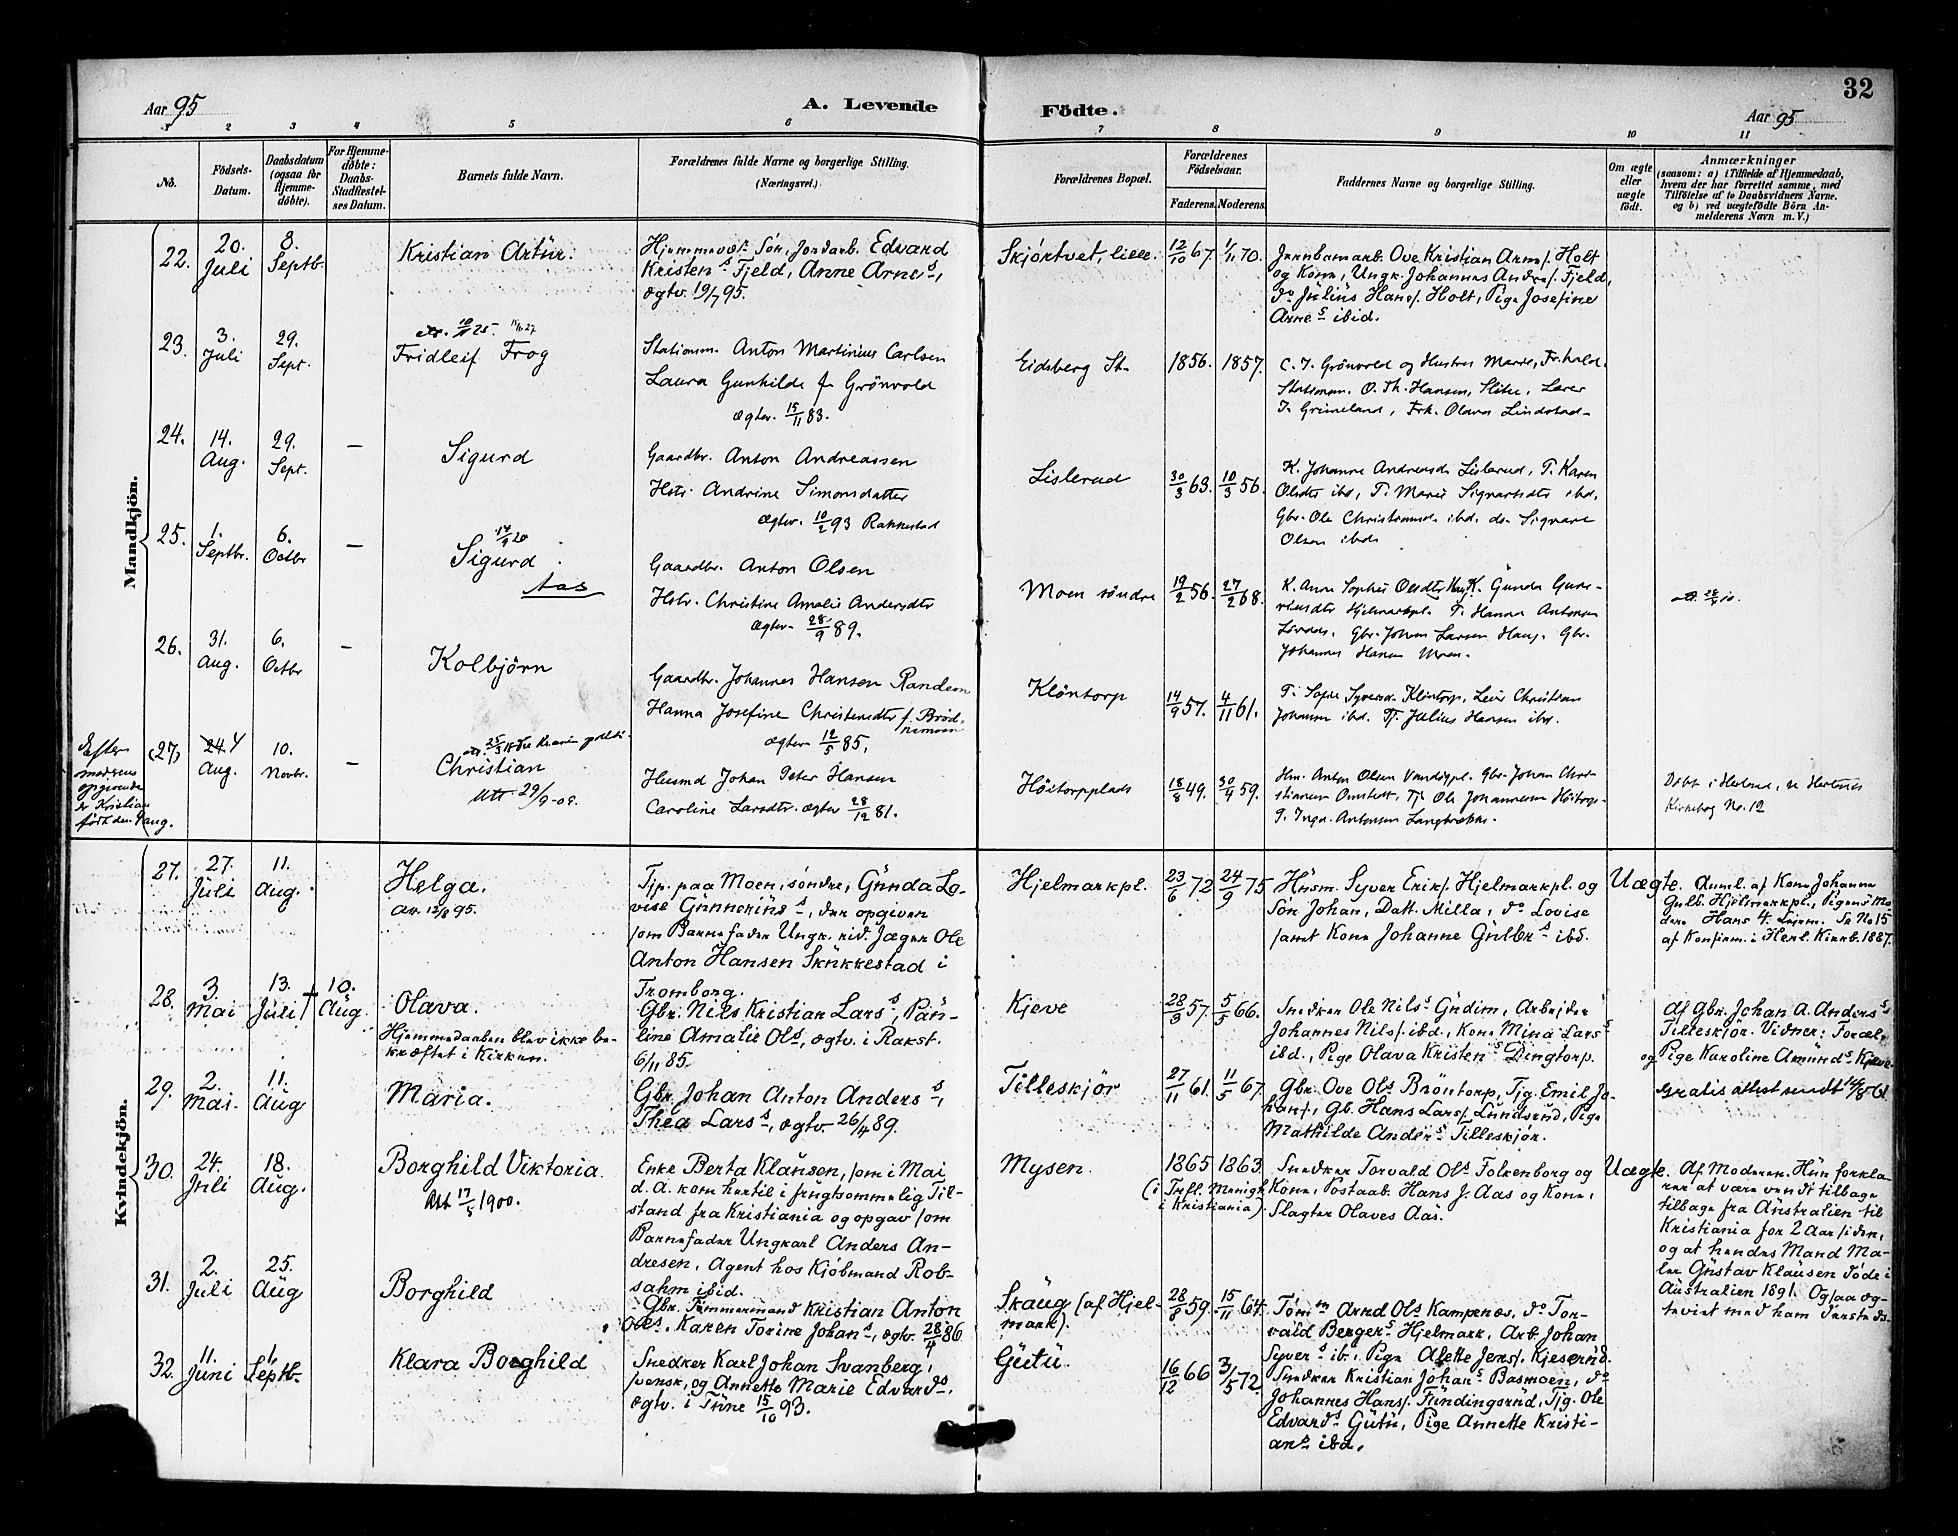 32
Aar 95
A. Levende Födte.
Aar 95
1 2 3 4 5 6 7 8 9 10 11
Nô.
Födsels-
Datum.
Daabsdatum
(ogsaa for
Hjemme-
döbte).
For Hjemme-
döbte:
Daabs-
Stadfæstel-
ses Datum.
Barnets fulde Navn.
Forældrenes fulde Navne og borgerlige Stilling.
(Næringsvei.)
Forældrenes Bopæl.
Forældrenes
Födselsaar.
Faderens. Moderens.
Faddernes Navne og borgerlige Stilling.
Om ægte
eller
uægte
födt.
Anmærkninger
(saasom: a) i Tilfælde af Hjemmedaab,
hvem der har forrettet samme, med
Tilföielse af to Daabsvidners Navne.
og b) ved uægtefödte Börn An-
melderens Navn m. V.)
Mandkjön.
22.
20.
Juli
8.
Septb.
Kristian Artur.
Sön, Jordarb. Edvard
Kristens Fjeld, Anne Arnes,
ægtv. 19/7 95.
Skjörtvet, lille.
12/10 67.
1/11 70.
Ove Kristian Arnes. Holt
og Kone, Ungk. Johannes Andres. Fjeld,
do Julius Hans. Holt, Pige Josefine
Arnes ibid.
23.
3.
Juli
29.
Sept.
Fridleif Frog
Stationsm. Anton Martinius Carlsen
Laura Gunhilde f. Grönvold
Ægtev. 15/11 83.
Eidsberg St.
1856.
1857.
C. J. Grönvold og Hustru Marie, Fr.hald.
Stationsm. O. Th. Hansen, Slitu, Lærer
J. Grimeland, Frk. Olava Lindstad
24.
14.
Aug.
29.
Sept.
–
Sigurd
Gaardbr. Anton Andreassen
Hstr. Andrine Simonsdatter
Ægtev. 10/2 93 Rakkestad
Lislerud
30/3 63.
10/3 56.
K. Johanne Andreasdt. Lislerud, P. Karen
Olsdtr ibd, P. Marie Sigvartsdtr ibd,
Gbr. Ole Christiansen ibd. do. Sigvart
Olsen ibd.
25.
1.
Septbr.
6.
Octbr
–
17/9 20
Sigurd
Aas
Gaardbr. Anton Olsen
Hstr. Christine Amalie Andersdtr
Ægtev. 28/9 89.
Moen söndre
19/2 56.
27/2 68.
K. Anne Sophie Olsdtr Haug, K. Gunda Gune-
riusdtr Hjelmarkpl. P. Hanna Antonsen
Gbr. Johan Larsen Haug. Gbr.
Johannes Hansen Moen.
26.
31.
Aug.
6.
Octbr
–
Kolbjörn
Gaardbr. Johannes Hansen Randem
Hanna Josefine Christensdtr f. Bröd-
Ægtev. 12/5 85.
Klöntorp
14/9 57.
4/11 61.
P. Sofie Syvers. Klöntorp, Leier Christian
Johansen ibd. Tj. Julius Hansen ibd.
Efter
moderens
opgivende
er Kristian
född den 4 aug.
(27)
24 4
Aug.
10.
Novbr.
–
Christian
Utt 29/9-08.
Husmd Johan Peter Hansen
Caroline Larsdtr. Ægtev 28/12 81.
Höitorpplads
18/8 49.
30/9 59.
Hm. Anton Olsen Gbr. Johan Chri-
stiansen Tj. Ole Johannesen Höitorp
P. Inga Antonsen Langbrække.
Döbt i Herland, se Herlands
Kirkebog No. 12
Kvindekjön.
27.
27.
Juli
11.
Aug.
Helga.
Att. 12/8 95.
Tjp. paa Moen, söndre, Gunda Lo-
vise Gunneriuss, der opgiver
som Barnefader Ungk. rid. Jæger Ole
Anton Hansen Skukkestad i
Tromborg.
Hjelmarkpl.
23/6 72
24/9 75
Husm. Syver Eriks. Hjelmarkpl. og
Sön Johan, Datt. Milla, do Lovise
samt Kone Johanne Gulbrs ibd.
Uægte.
Anml. af Kone Johanne
Gulb. Hjelmarkpl., Pigens Mo-
der. Hans 4. Leierm. Se No 15
af Konfirm. i Herl. Kirkeb. 1887.
28.
3.
Mai
13.
Juli
†
10.
Aug.
Olava.
Hjemmedaaben blev ikke be-
kræftet i Kirken.
Gbr. Nils Kristian Lars, Pau-
line Amalie Ols, ægtv. i Rakst.
6/11 85.
Kjeve
28/8 57.
5/5 66.
Snedker Ole Nils Gudim, Arbejder
Johannes Nils. ibd., Kone Mina Lars
ibd., Pige Olava Kristens Dingtorp.
Af Gbr. Johan A. Anders
Tilleskjör. Vidner: Foræl.
og Pige Karoline Amunds Kjeve.
29.
2.
Mai.
11.
Aug
Maria.
Gbr. Johan Anton Anders,
Thea Lars, ægtv. 26/4 89.
Tilleskjör
27/11 61.
11/5 67.
Gbr. Ove Ols Bröntorp, Tjg. Emil Jo-
hans., Gb. Hans Lars. Lundsrud, Pige
Mathilde Anders Tilleskjör.
Gratis attest sendt 14/8 61
30.
24.
Juli
18.
Aug.
Borghild Viktoria.
Att 17/5 1900.
Enke Berta Klausen, som i Mai
d. A. kom hertil i frugtsommelig Til-
stand fra Kristiania og opgav som
Barnefader Ungkarl Anders An-
dresen, Agent hos Kjöbmand Rob-
sahm ibid.
Mysen.
1865
1863.
(i Trefl. Menigh.
i Kristiania).
Snedker Torvald Ols Folkenborg og
Kone, Postaab. Hans J. Aas og Kone,
Slagter Olaves Aas.
Uægte.
Af Moderen. Hun forkla-
rer at være vendt tilbage
tilbage fra Australien til
Kristiania for 2 Aar siden,
og at hendes Mand Ma-
ler Gustav Klausen döde i
Australien 1891. Ogsaa æg-
teviet med ham dersteds.
31.
2.
Juli
25.
Aug
Borghild
Gbr. Tömmermand Kristian Anton
Oles. Karen Torine Johans, ægtv. 28/4 86
Skaug (af Hjel-
mark).
28/8 59.
15/11 64.
Tömm Arnd Ols Kampenes, do Tor-
vald Bergers Hjelmark, Arb. Johan
Syvers ib., Pige Alette Jens. Kjeserud.
32.
11.
Juni
1.
Septb.
Klara Borghild
Snedker Karl Johan Svanberg,
svensk, og Annette Marie Edvards,
ægtv. i Tune 15/10 93.
Gutu.
16/12 66
3/5 72.
Snedker Kristian Johans Basmoen, do
Johannes Hans. Fundingsrud, Tjg. Ole
Edvards Gutu, Pige Annette Kristi-
ans ibd.